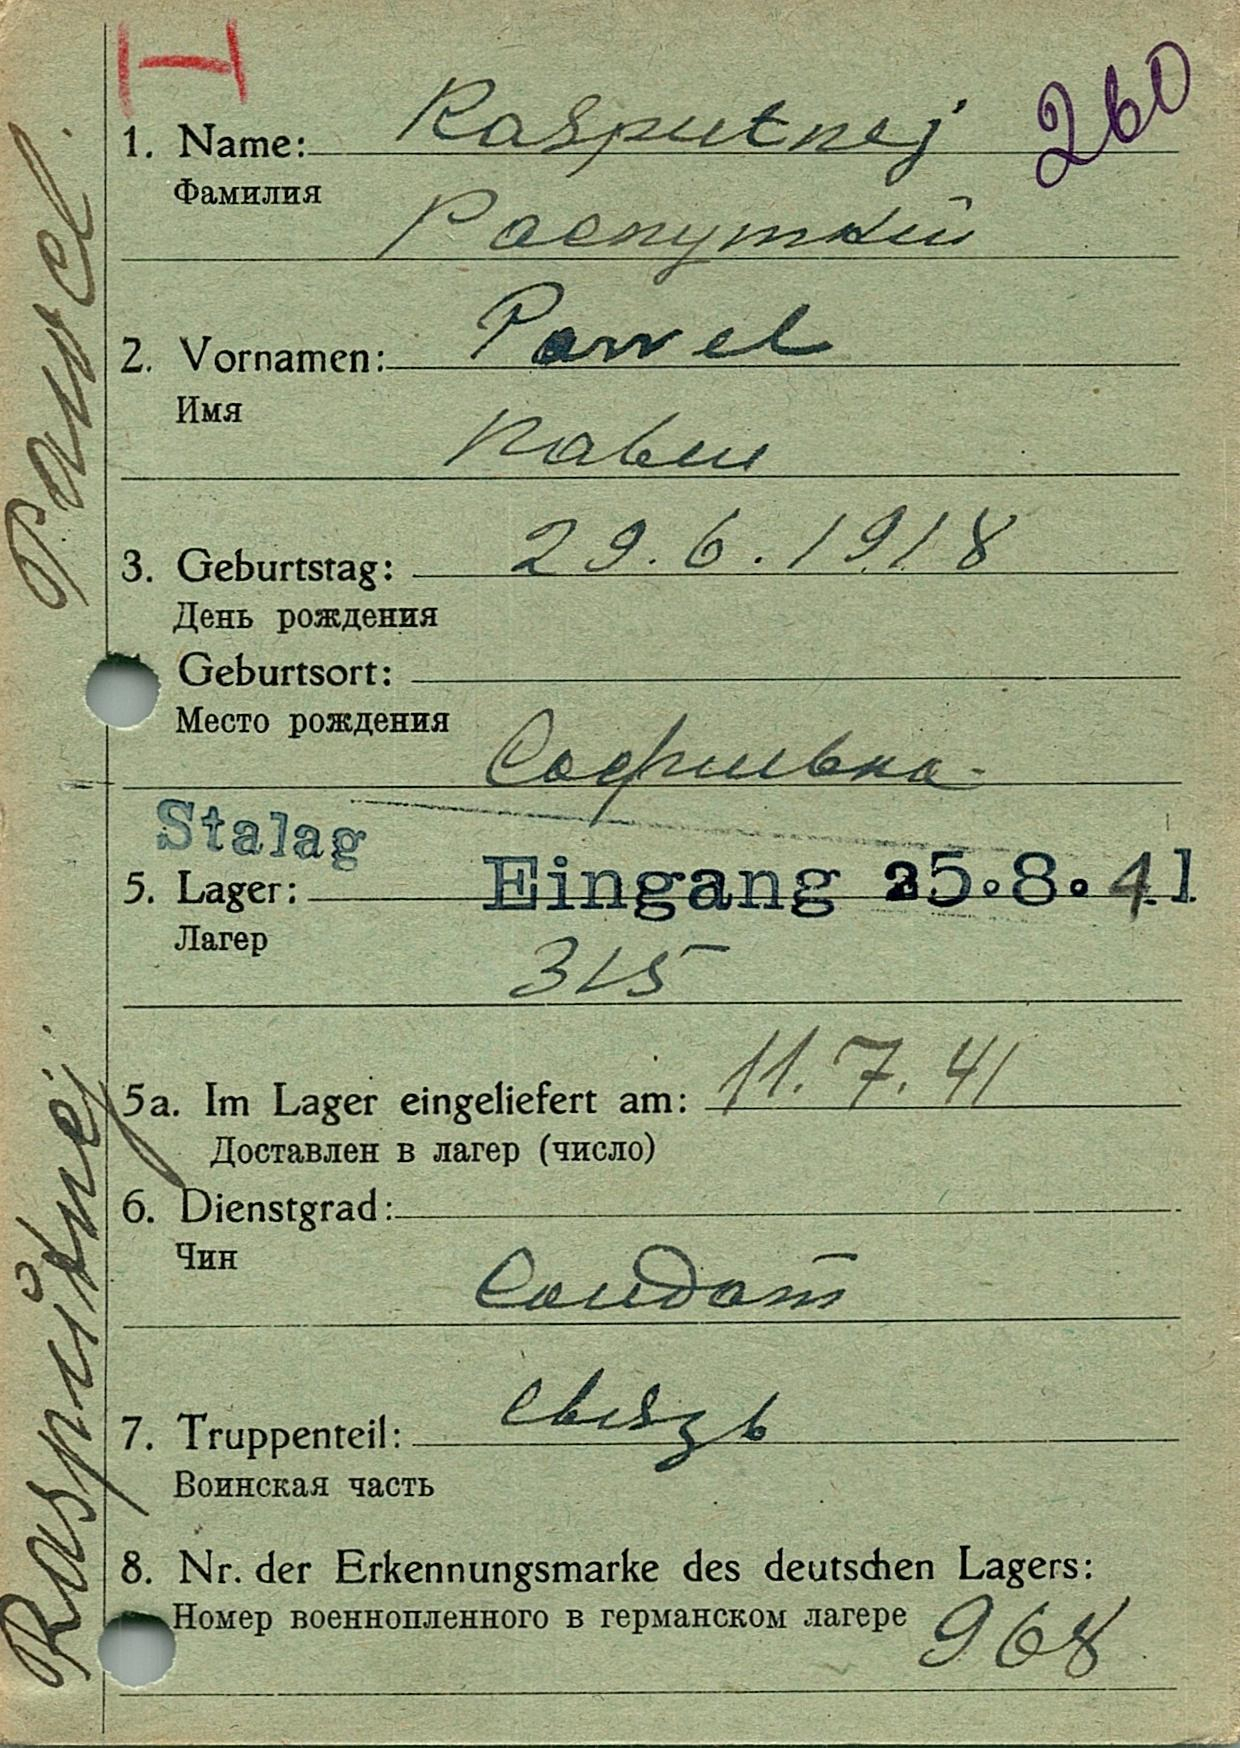 260
1. Name: Rasputnej
Фамилия
Распутний
2. Vornamen: Pawel
Имя
Павел
3. Geburtstag: 29.6.1918
День рождения
Geburtsort:
Место рождения
Софиивка
Stalag
5. Lager: Eingang 25.8.41
Лагер
315
5a. Im Lager eingeliefert am: 11.7.41
Доставлен в лагер (число)
6. Dienstgrad:
Чин
Солдат
7. Truppenteil: Связь
Воинская часть
8. Nr. der Erkennungsmarke des deutschen Lagers:
Номер военнопленного в германском лагере 968
Rasputnej Pawel.